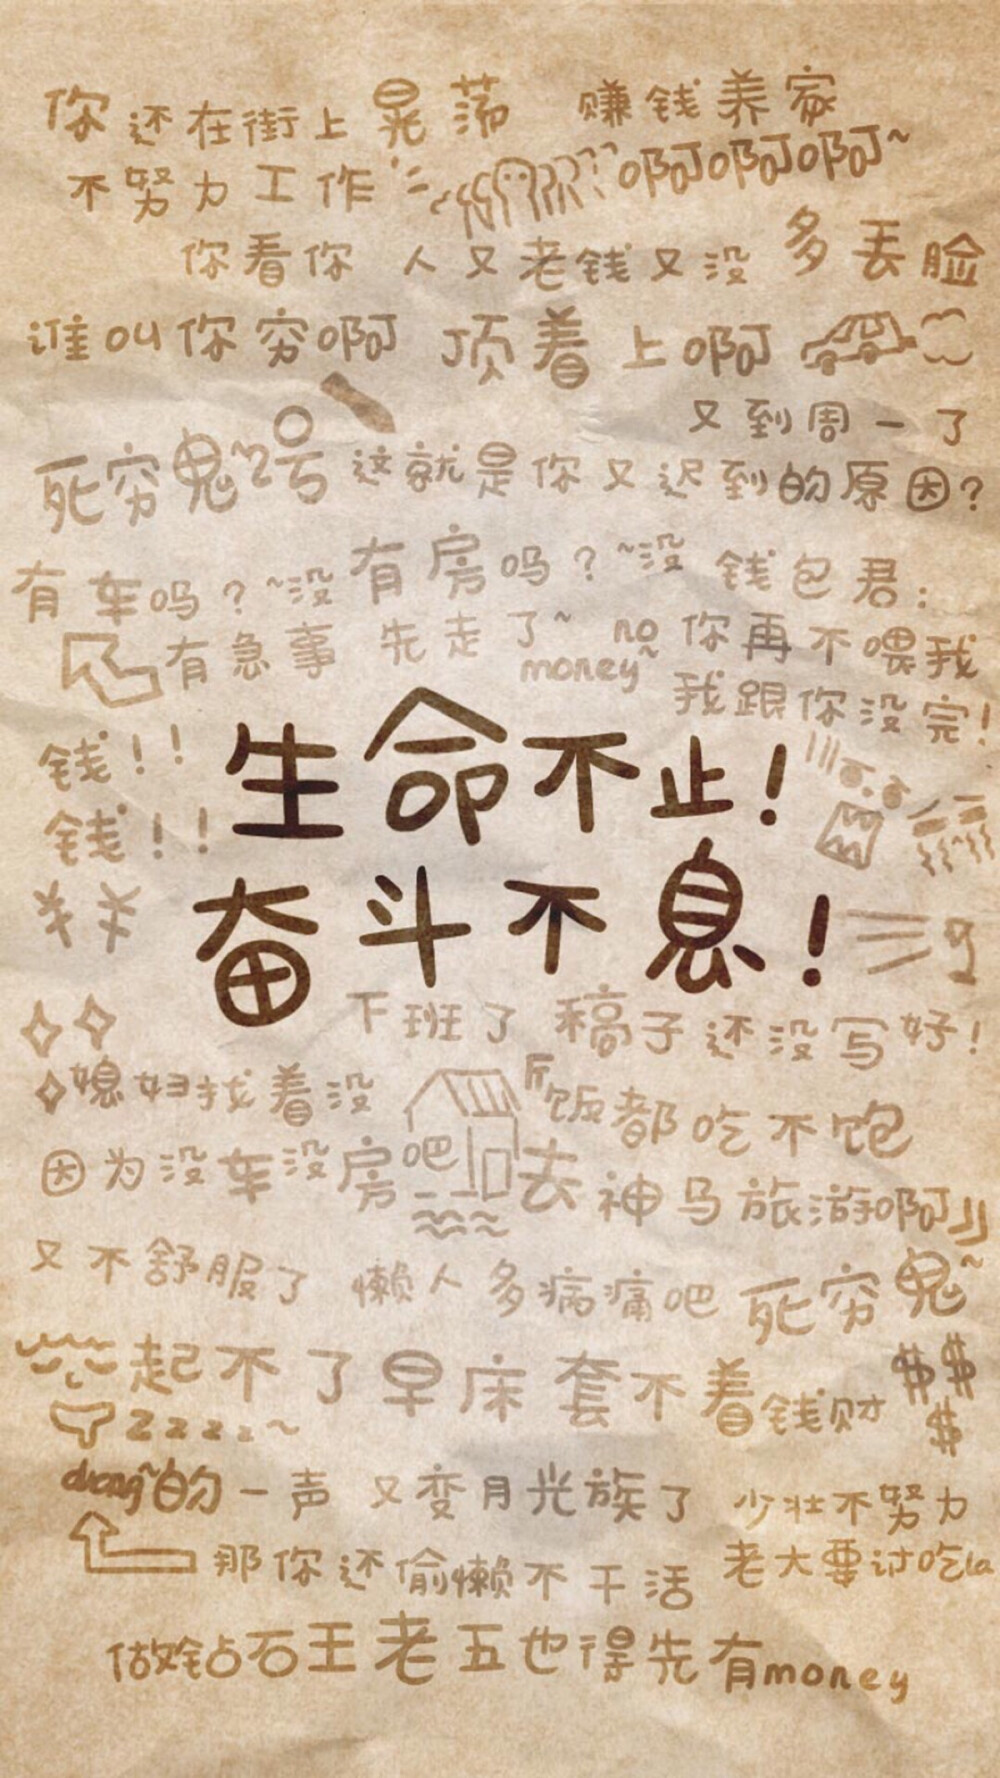 你还在街上晃荡 赚钱养家
不努力工作 啊啊啊~
你看你 人又老钱又没 多丢脸
谁叫你穷啊 顶着上啊
又到周一了
死穷鬼~2号 这就是你又迟到的原因?
有车吗?~没有房吗?~没 钱包君:
有急事 先走了~ no money~ 你再不喂我
我跟你没完!
钱!!
钱!!
生命不止!
奋斗不息!
下班了 稿子还没写好!
媳妇找着没 饭都吃不饱
因为没车没房吧 去神马旅游啊
又不舒服了 懒人多病痛吧 死穷鬼~
起不了早床 套不着钱财 $$
zzzzz~ $
duang~的一声 又变月光族了 少壮不努力
那你还偷懒不干活 老大要讨吃la
做钻石王老五也得先有money